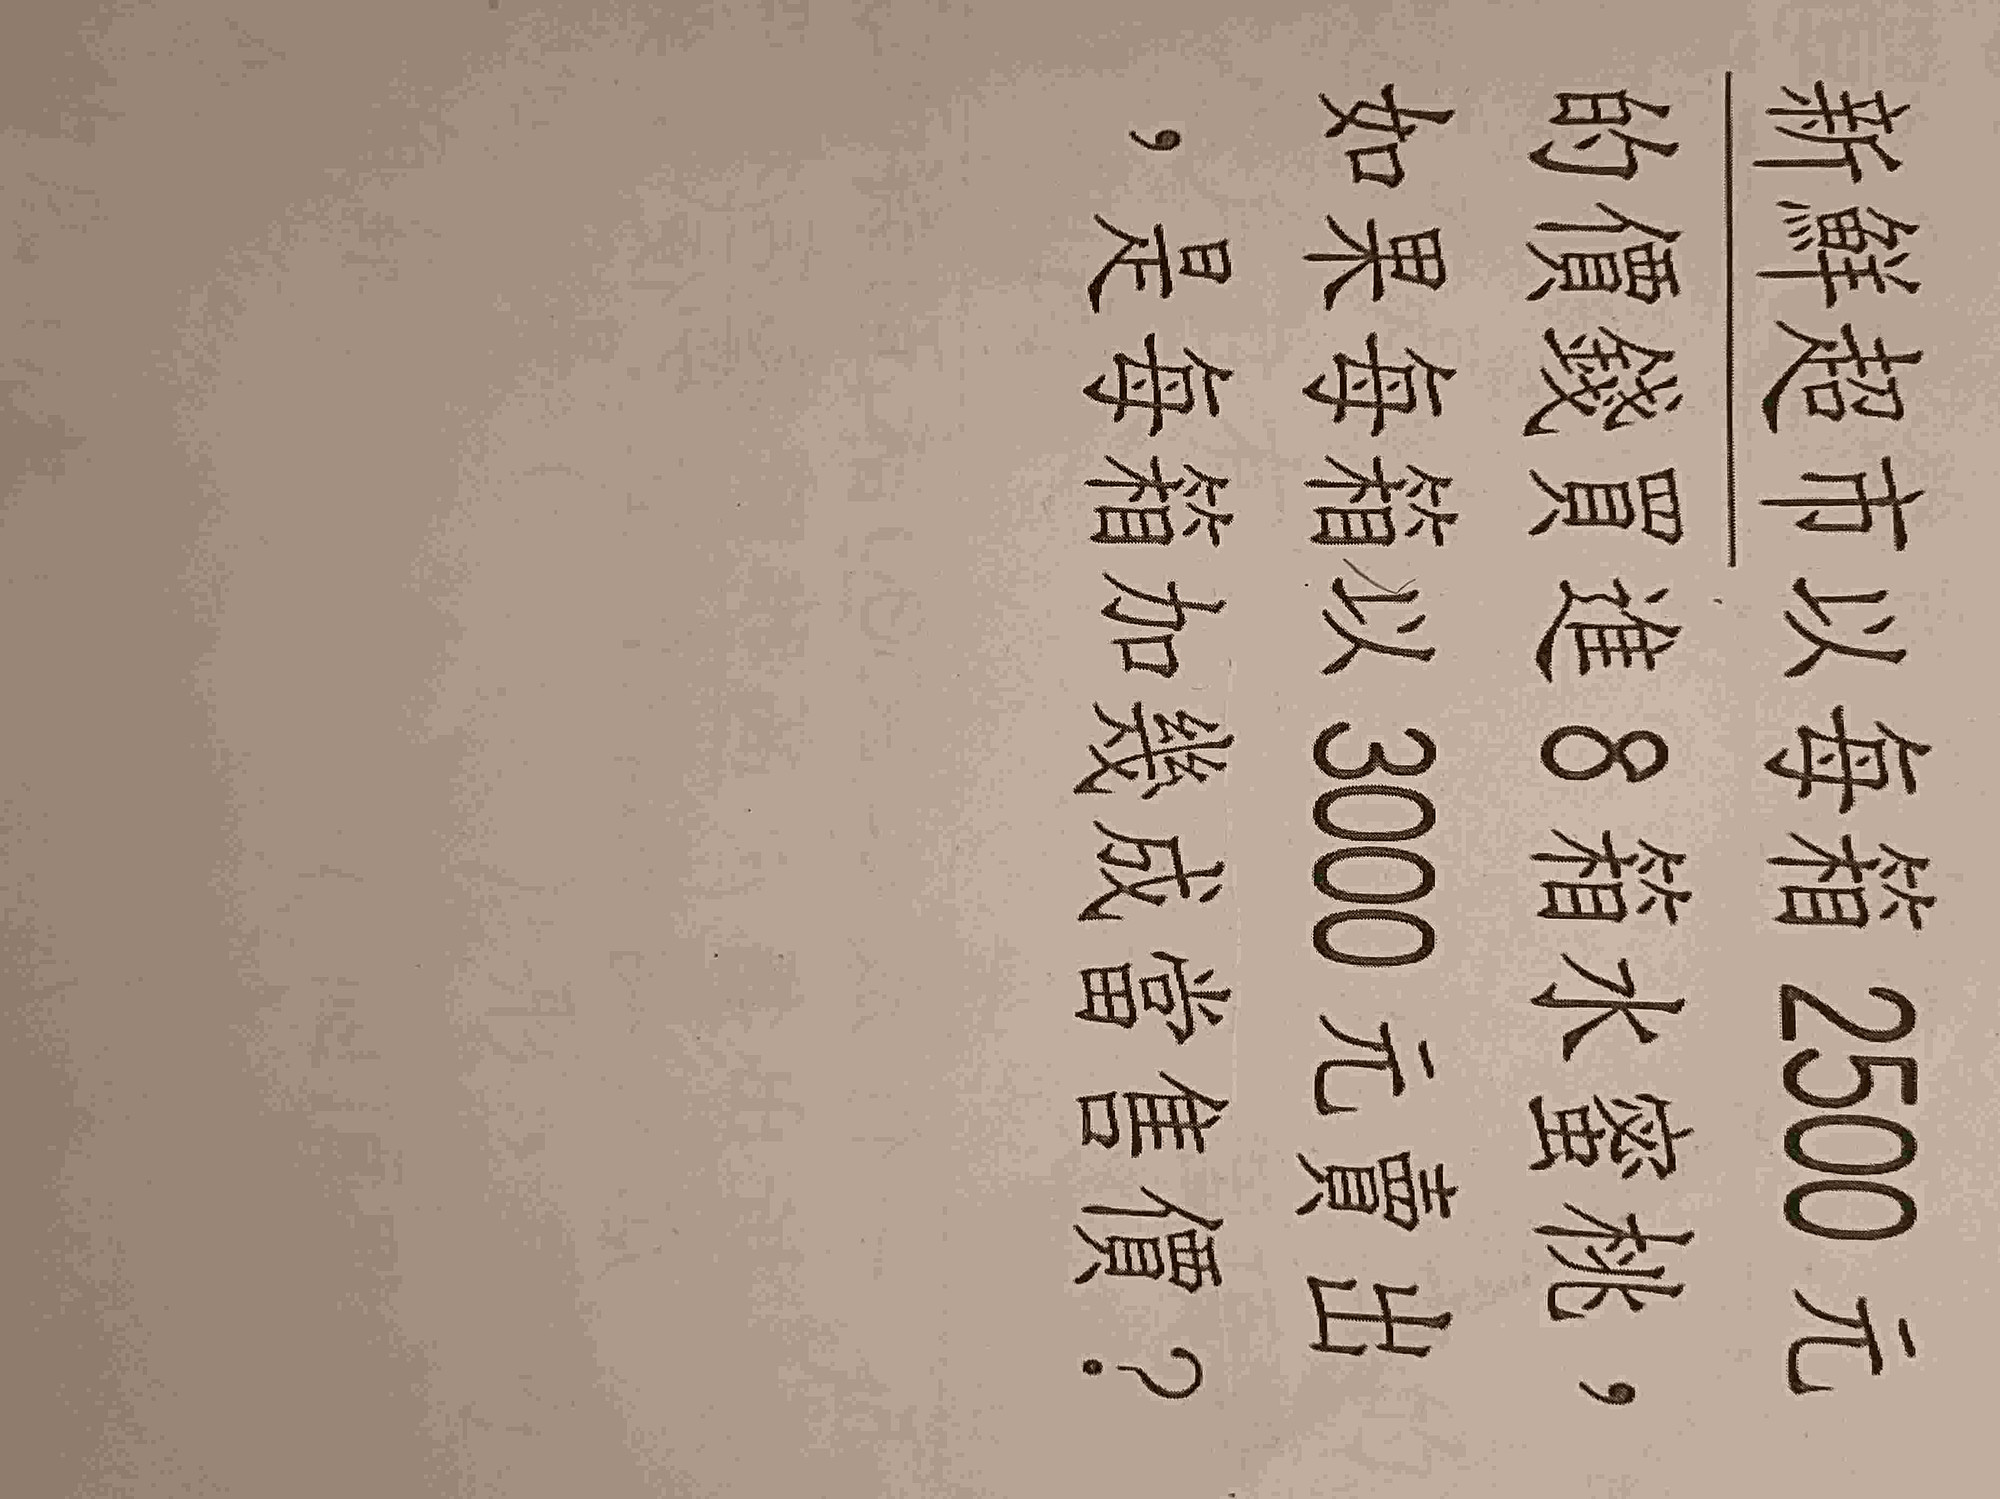 新鮮超市以每箱 2500 元
的價錢買進 8 箱水蜜桃，
如果每箱以 3000 元賣出
，是每箱加幾成當售價？